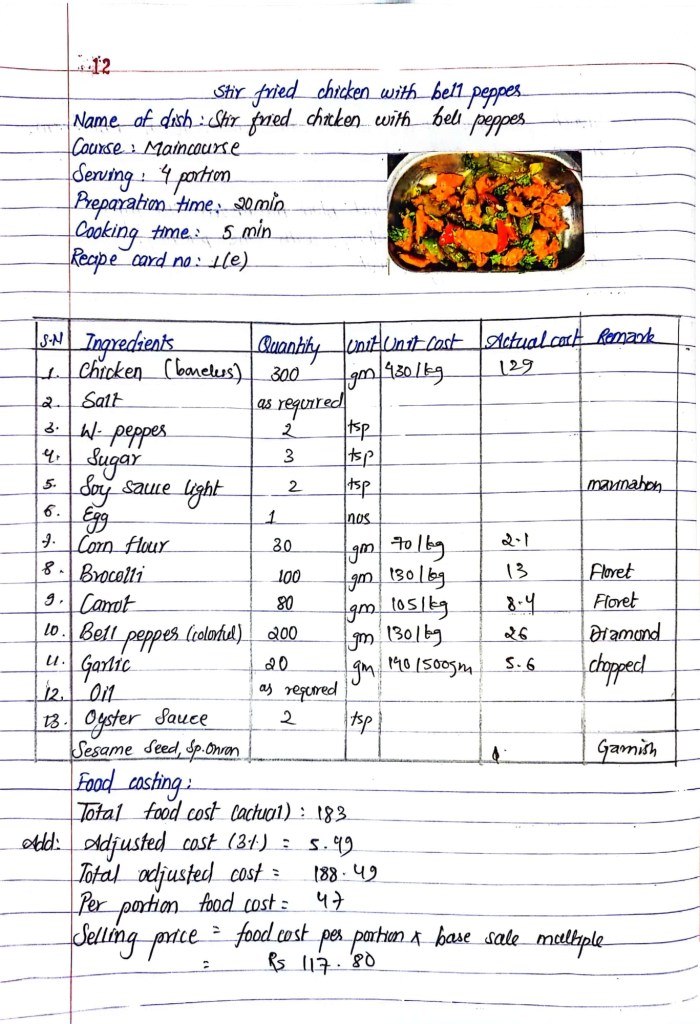 12
Stir fried chicken with bell pepper
Name of dish : Stir fried chicken with bell pepper
Course : Maincourse
Serving : 4 portion
Preparation time : 20 min
Cooking time : 5 min
Recipe card no : 1(e)
S.N Ingredients Quantity Unit Unit Cost Actual cost Remark
1. Chicken (boneless) 300 gm 430/kg 129
2. Salt as required
3. W- pepper 2 tsp
4. Sugar 3 tsp
5. Soy sauce light 2 tsp marination
6. Egg 1 nos
7. Corn flour 30 gm 70/kg 2.1
8. Brocolli 100 gm 130/kg 13 Floret
9. Carrot 80 gm 105/kg 8.4 Floret
10. Bell pepper (colorful) 200 gm 130/kg 26 Diamond
11. Garlic 20 gm 140/500gm 5.6 chopped
12. Oil as required
13. Oyster Sauce 2 tsp
Sesame Seed, Sp.Onion Garnish
Food costing :
Total food cost (actual) : 183
Add: Adjusted cost (3%) = 5.49
Total adjusted cost = 188.49
Per portion food cost = 47
Selling price = food cost per portion x base sale multiple
= Rs 117.80